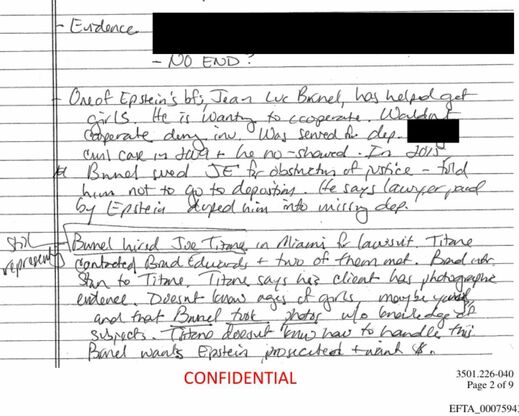 - Evidence
- NO END?
- One of Epstein's bfs, Jean Luc Brunel, has helped get
girls. He is wanting to cooperate. Wouldn't
cooperate during inv. Was served for dep.
civil case in 2009 + he no-showed. In 2015
Brunel sued JE for obstruction of justice - told
him not to go to deposition. He says lawyer paid
by Epstein duped him into missing dep.
still
represents
Brunel hired Joe Titone in Miami for lawsuit. Titone
contacted Brad Edwards + two of them met. Brad
to Titone, Titone says his client has photographic
evidence. Doesn't know ages of girls, maybe young,
and that Brunel took photos w/o knowledge of
subjects. Titone doesn't know how to handle this
Brunel wants Epstein prosecuted + want $.
CONFIDENTIAL
3501.226-040
Page 2 of 9